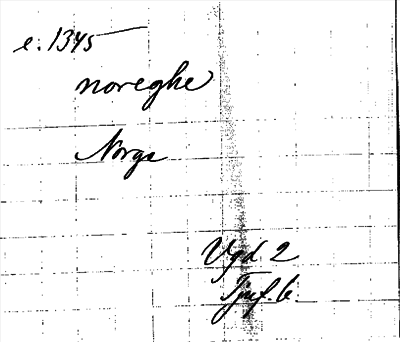 e. 1345
noreghe
Norge
Vgd 2
Tjuf. 6.